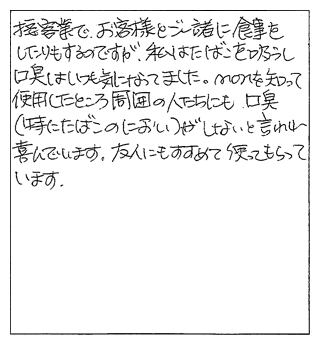 接客業で、お客様とご一諸に食事を
したりもするのですが、私はたばこを吸うし
口臭はいつも気になってました。nonを知って
使用したところ周囲の人たちにも 口臭
(特にたばこのにおい)がしないと言われ
喜んでいます。友人にもすすめて使ってもらって
います.